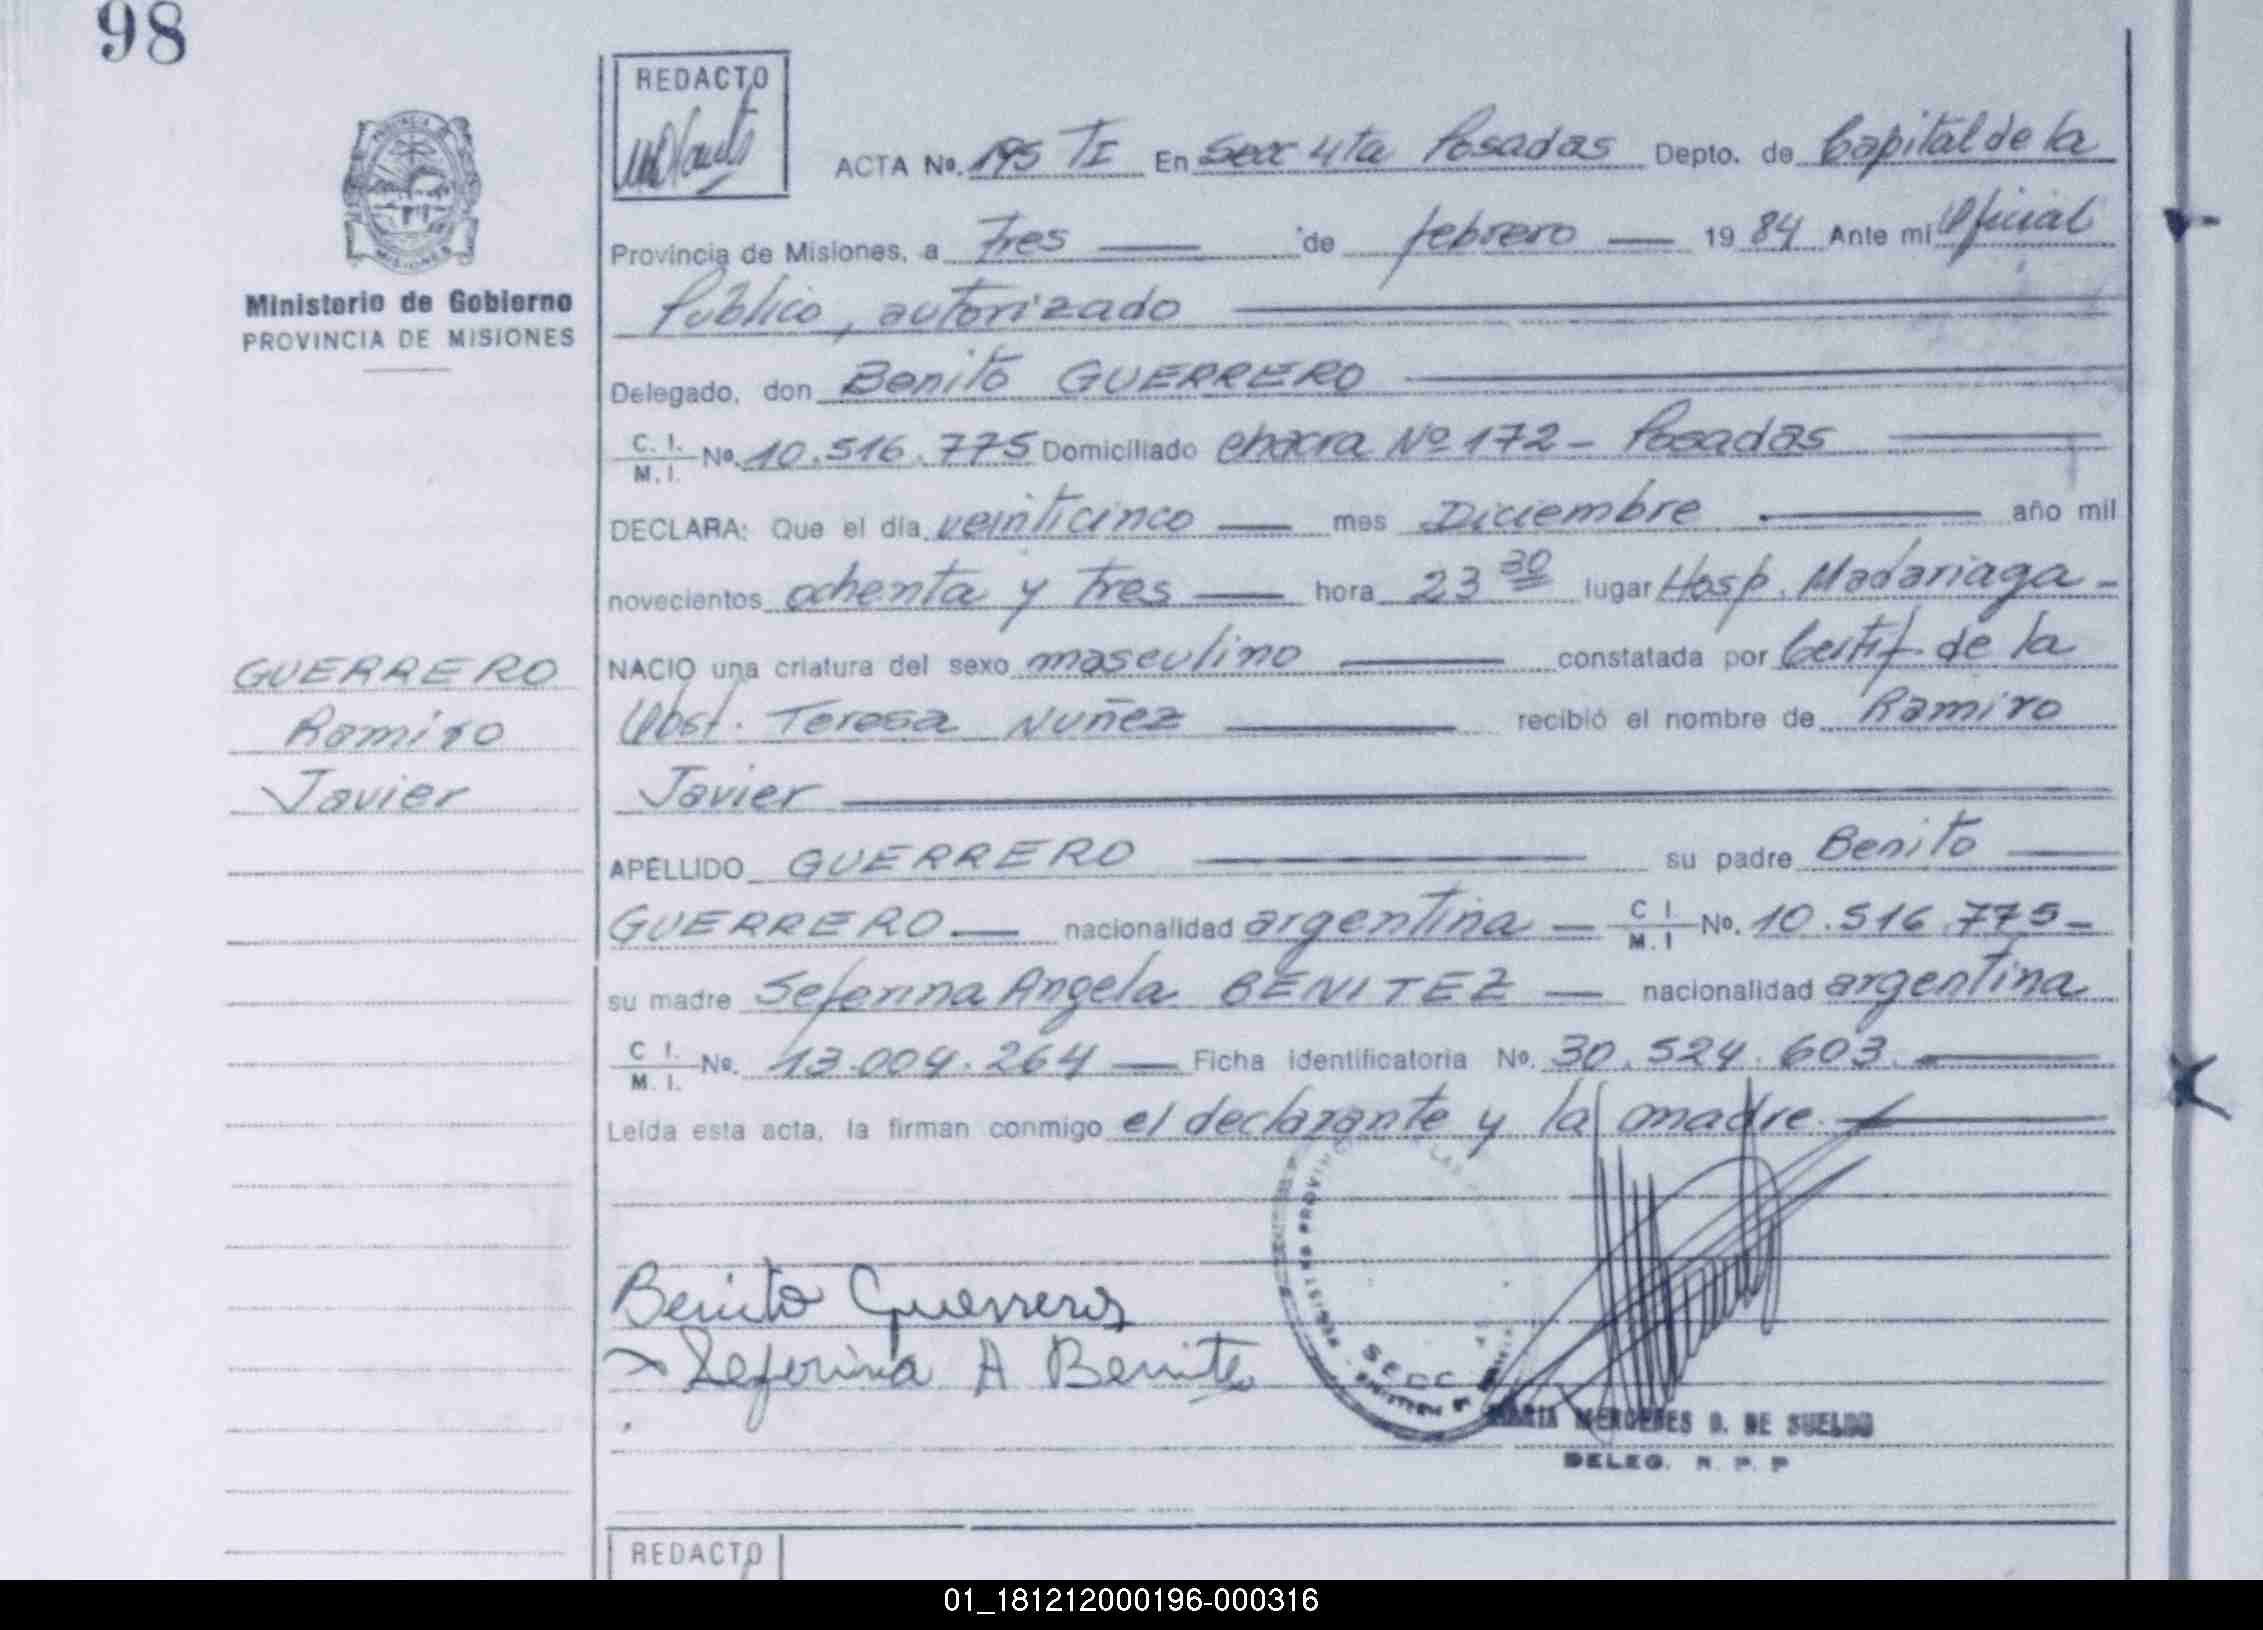 98
REDACTO
PROVINCIA DE
MISIONES
Ministerio de Gobierno
PROVINCIA DE MISIONES
ACTA Nº. 195 TI En Secc 4ta Posadas Depto. de Capital de la
Provincia de Misiones, a Tres de febrero 1984 Ante mi Oficial
Público, autorizado
Delegado, don Benito GUERRERO
C. I. / M. I. Nº. 10.516.775 Domiciliado chacra Nº 172 - Posadas
DECLARA: Que el día veinticinco mes Diciembre año mil
novecientos ochenta y tres hora 23 30 lugar Hosp. Madariaga -
NACIO una criatura del sexo masculino constatada por Certif de la
Obst. Teresa NUÑEZ recibió el nombre de Ramiro
Javier
APELLIDO GUERRERO su padre Benito
GUERRERO nacionalidad argentina C I / M. I Nº. 10.516.775 -
su madre Seferina Angela BENITEZ nacionalidad argentina
C I. / M. I. Nº. 13.004.264 Ficha identificatoria Nº. 30.524.603.
Leída esta acta, la firman conmigo el declarante y la madre.
GUERRERO
Ramiro
Javier
Benito Guerrero
Seferina A Benite
SECC
MARIA MERCEDES D. DE SUELDO
DELEG. R. P. P
REDACTO
01_181212000196-000316